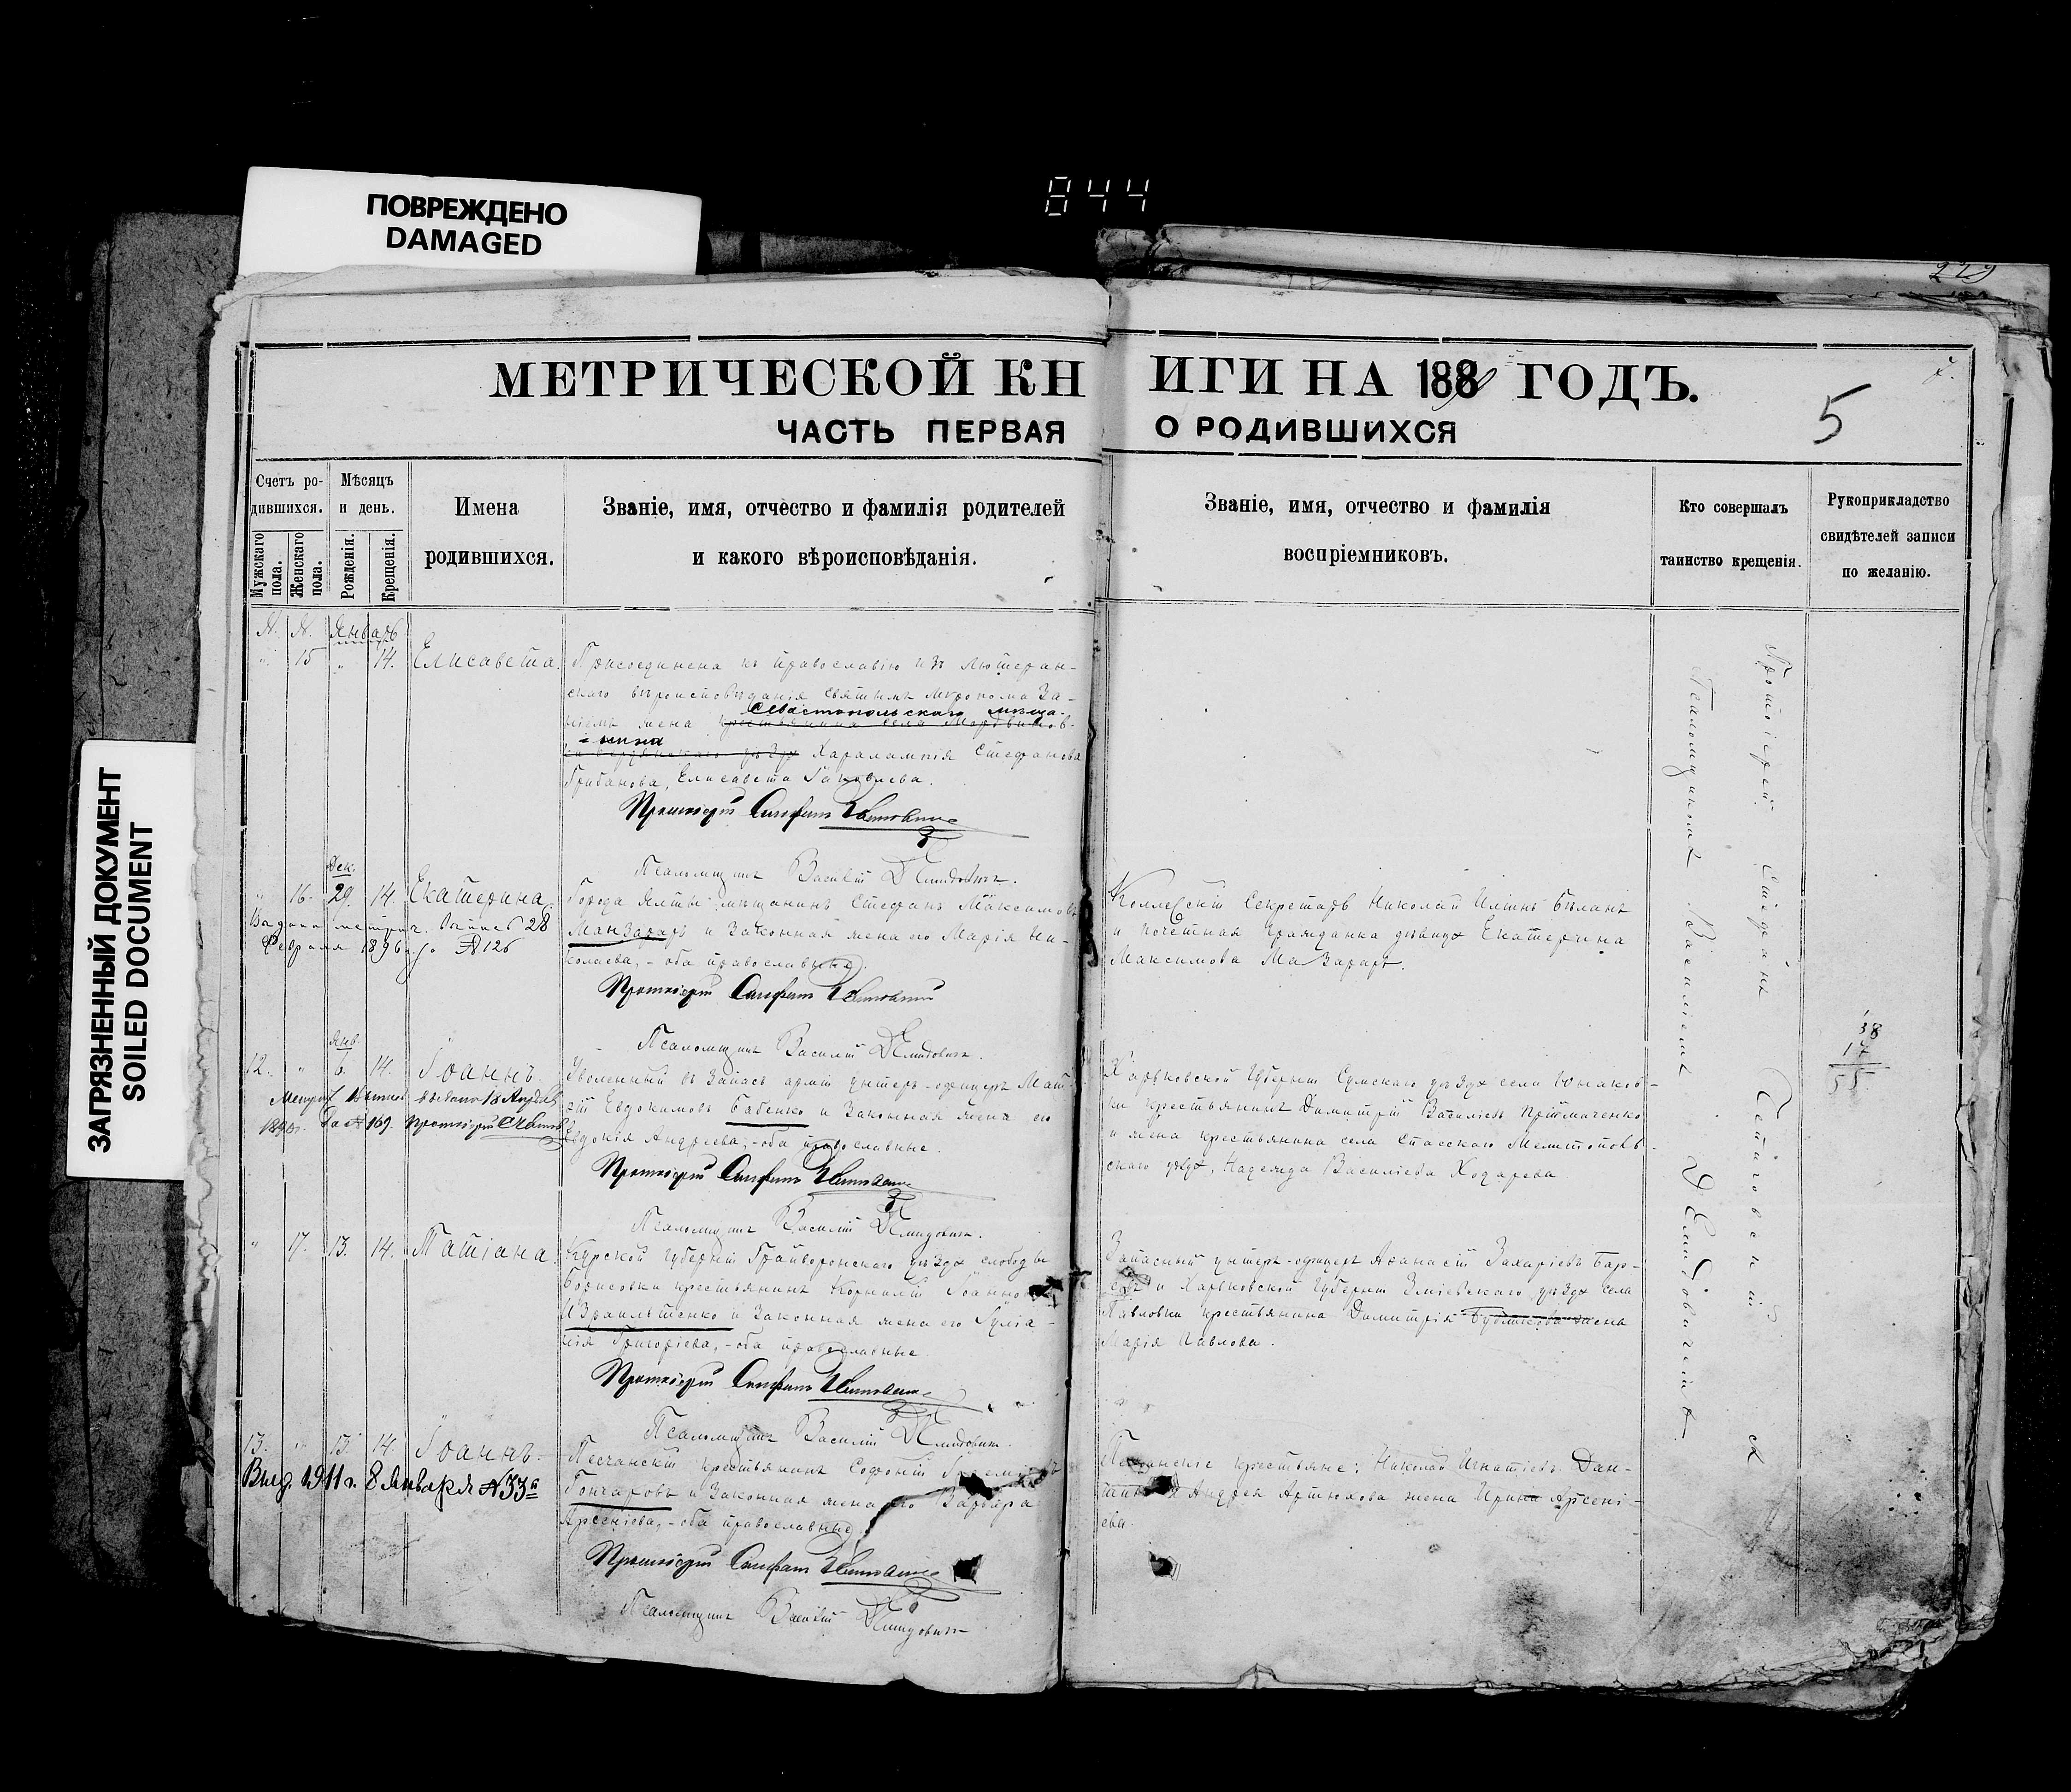 ПОВРЕЖДЕНО
DAMAGED
844
ЗАГРЯЗНЕННЫЙ ДОКУМЕНТ
SOILED DOCUMENT
229
МЕТРИЧЕСКОЙ КНИГИ НА 188 ГОДЪ.
7.
5
ЧАСТЬ ПЕРВАЯ О РОДИВШИХСЯ
Счетъ ро-
дившихся.
Мужскаго пола.
Женскаго пола.
Мѣсяцъ
и день.
Рожденія.
Крещенія.
Имена
родившихся.
Званіе, имя, отчество и фамилія родителей
и какого вѣроисповѣданія.
Званіе, имя, отчество и фамилія
воспріемниковъ.
Кто совершалъ
таинство крещенія.
Рукоприкладство
свидѣтелей записи
по желанію.
Январь
15 " 14. Елисавета.
Присоединена къ православію изъ лютеран-
скаго вѣроисповѣданія святымъ мѵропома за-
Севастопольскаго мѣща-
ніемъ жена
нина
Харалампія Стефанова
Грибанова, Елисавета Іаковлева.
Протоіерей Стефанъ
Псаломщикъ Василій Демидовичъ.
Дек.
" 16. 29. 14. Екатерина.
Города Ялты мѣщанинъ Стефанъ Максимовъ
Манзараръ и законная жена его Марія Ни-
колаева, - оба православные.
28
Февраля 1896 г. за № 126
Протоіерей Стефанъ
Псаломщикъ Василій Демидовичъ.
Коллежскій Секретарь Николай Илiинъ
и почетная гражданка дѣвица Екатерина
Максимова
Янв.
12. " 6. 14. Іоаннъ.
Уволенный въ запасъ арміи унтеръ-офицеръ Мат-
ѳій Евдокимовъ Бабенко и законная жена его
Евдокія Андреева, - оба православные.
за № 169. Протоіерей
Протоіерей Стефанъ
Псаломщикъ Василій Демидовичъ.
Харьковской губерніи Сумскаго уѣзда села Юнаков-
ки крестьянинъ Димитрій Василіевъ Приймаченко
и жена крестьянина села Спасскаго Мелитополь-
скаго уѣзда, Надежда Василіева Ходарева
" 17. 13. 14. Татіана.
Курской губерніи Грайворонскаго уѣзда слободы
Борисовки крестьянинъ Корнилій Іоанновъ
Израильтенко и законная жена его Іуліа-
нія Григоріева, - оба православные
Протоіерей Стефанъ
Псаломщикъ Василій Демидовичъ.
Запасный унтеръ-офицеръ Аѳанасій Захаріевъ Бар-
и Харьковской губерніи Зміевскаго уѣзда села
Павловки крестьянина Димитрія жена
Марія Павлова.
13. " 13. 14. Іоаннъ.
Песчанскій крестьянинъ Софоній
Гончаровъ и законная жена его Варвара
Арсеніева, - оба православные.
Выд. 1911 г. 8 Января № 33
Протоіерей Стефанъ
Псаломщикъ Василій Демидовичъ
крестьяне: Николай Игнатіевъ Дан-
Андрея Артюхова жена Ирина Арсені-
ева.
Протоіерей Стефанъ
Псаломщикомъ Василіемъ Демидовичемъ.
38
17
55